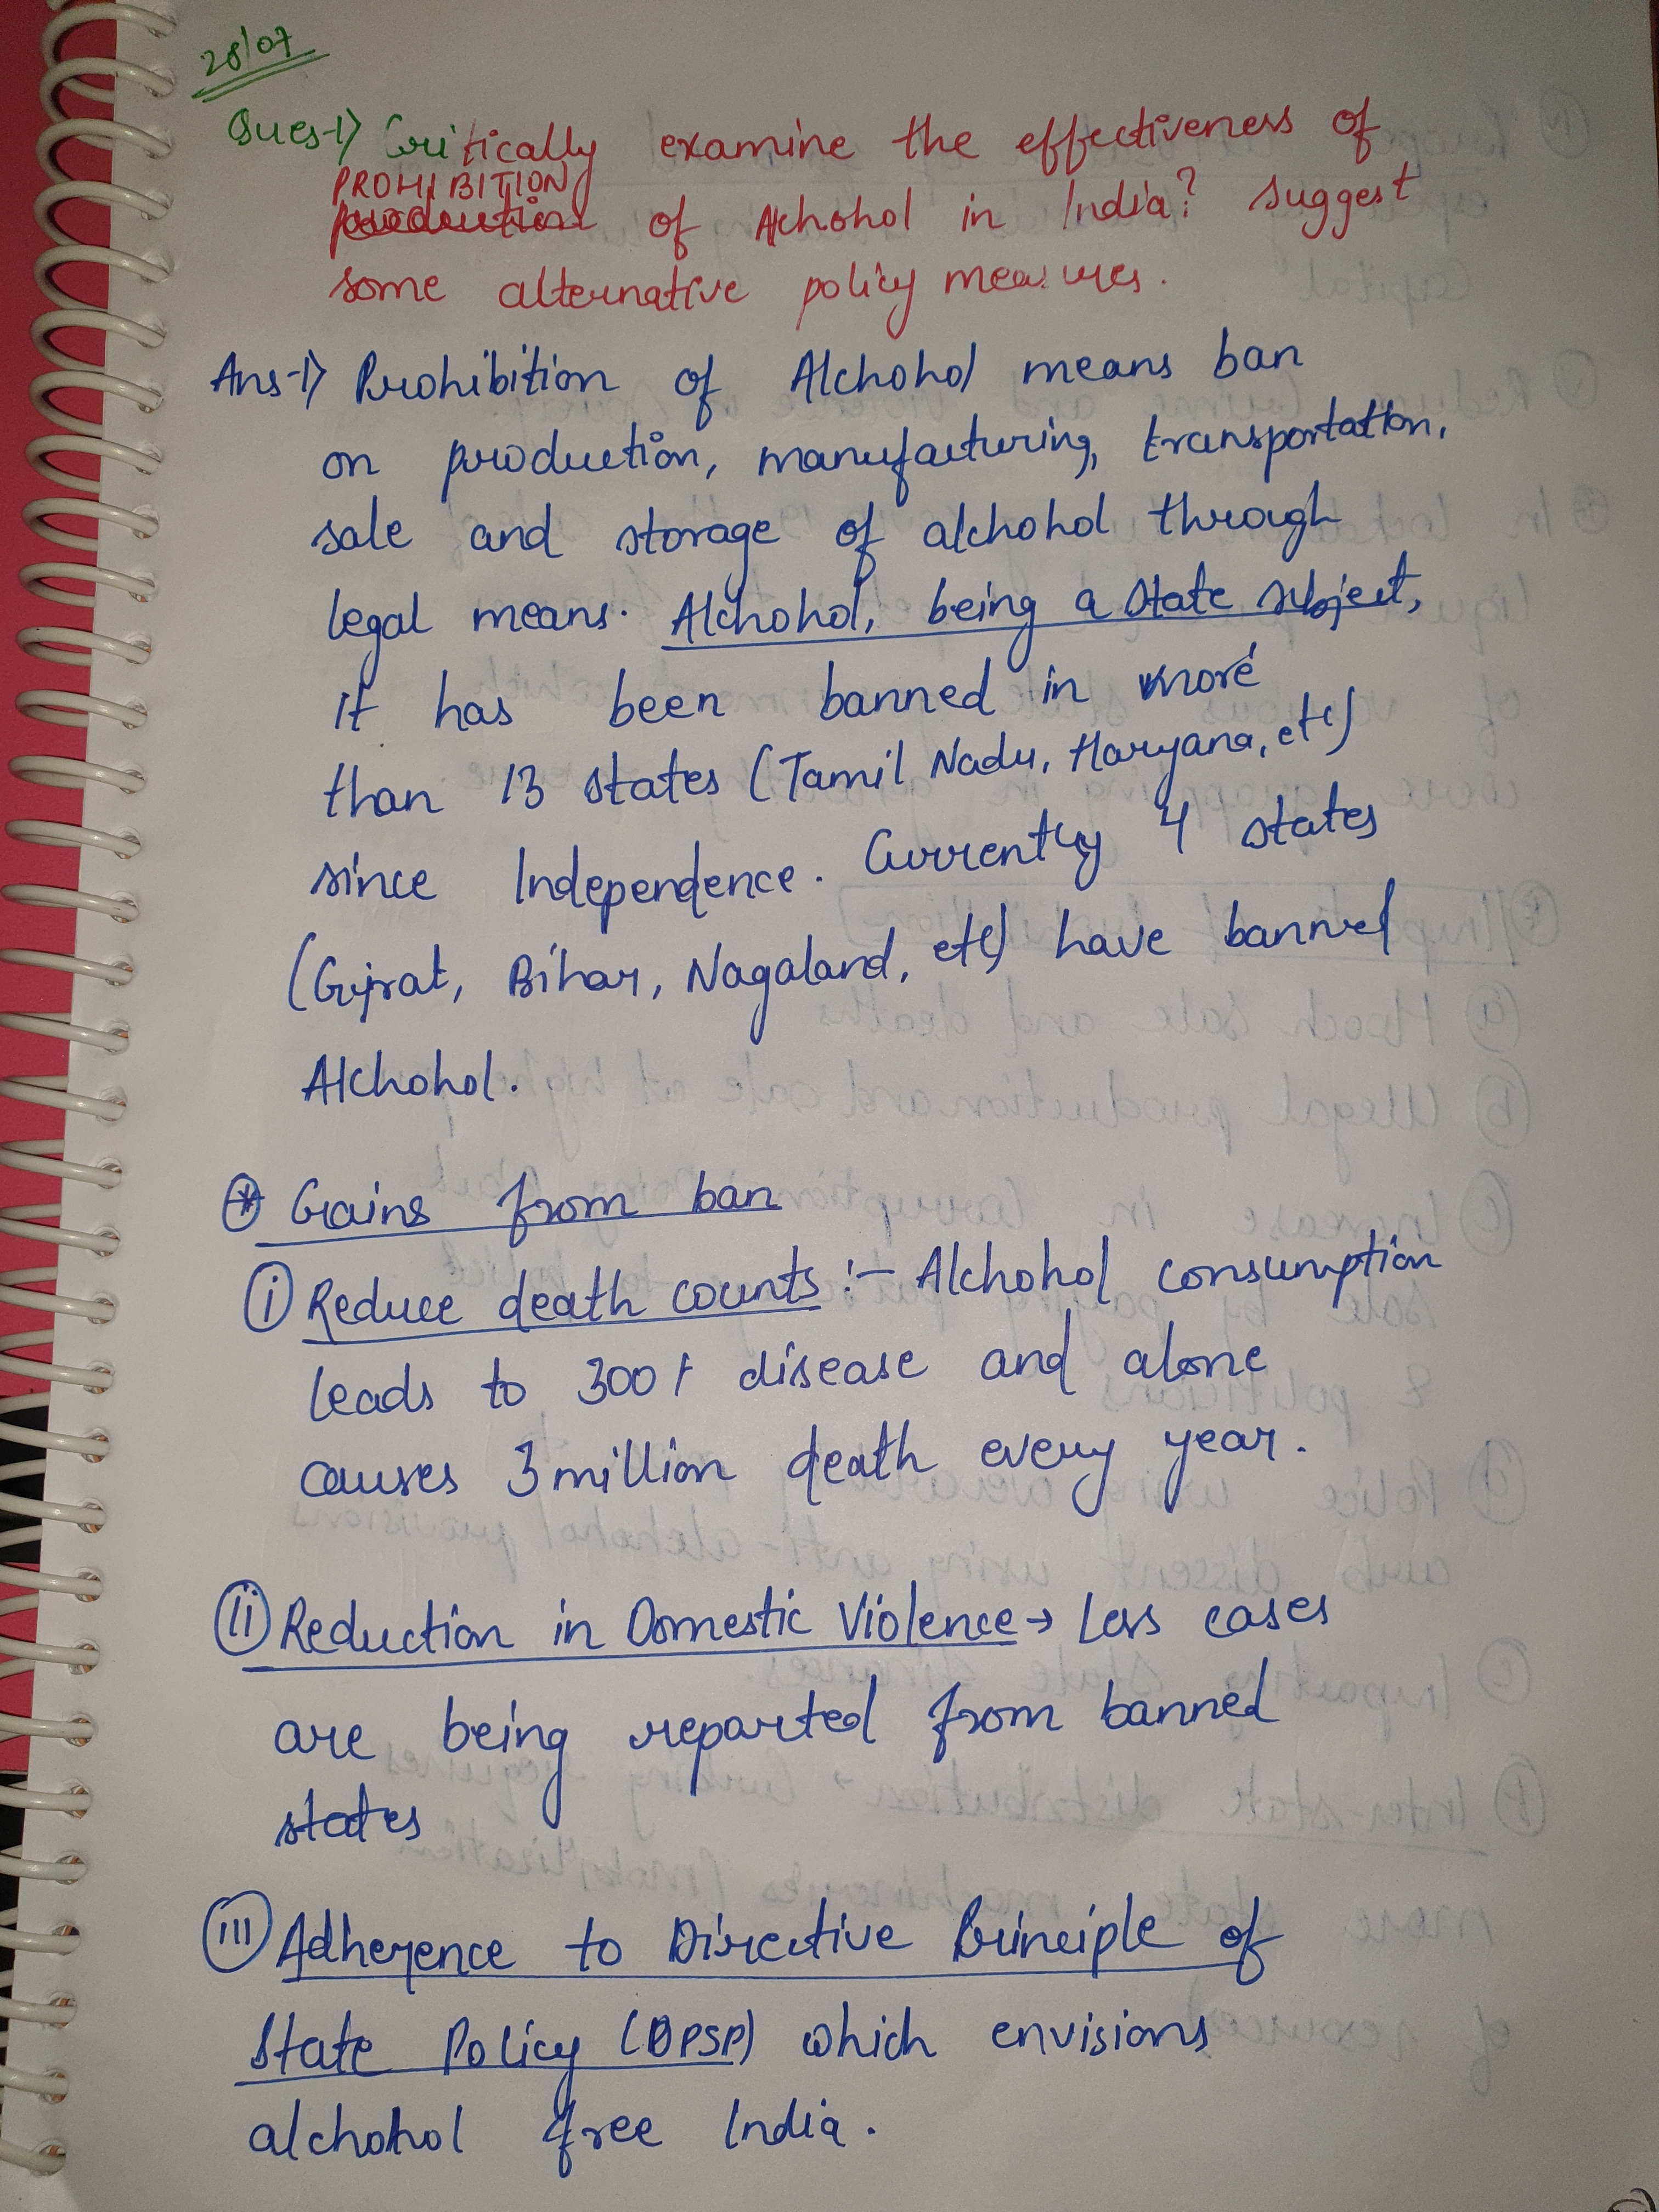 28/07
Ques-1) Critically examine the effectiveness of
PROHIBITION
of Alchohol in India? Suggest
some alternative policy measures.
Ans-1) Prohibition of Alchohol means ban
on production, manufacturing, transportation,
sale and storage of alchohol through
legal means. Alchohol, being a state subject,
it has been banned in more
than 13 states (Tamil Nadu, Haryana, etc)
since Independence. Currently 4 states
(Gujrat, Bihar, Nagaland, etc) have banned
Alchohol.
* Gains from ban
i Reduce death counts :- Alchohol consumption
leads to 300+ disease and alone
causes 3 million death every year.
ii Reduction in Domestic Violence → Less cases
are being reported from banned
states
iii Adherence to Directive Principle of
State Policy (DPSP) which envisions
alchohol free India.